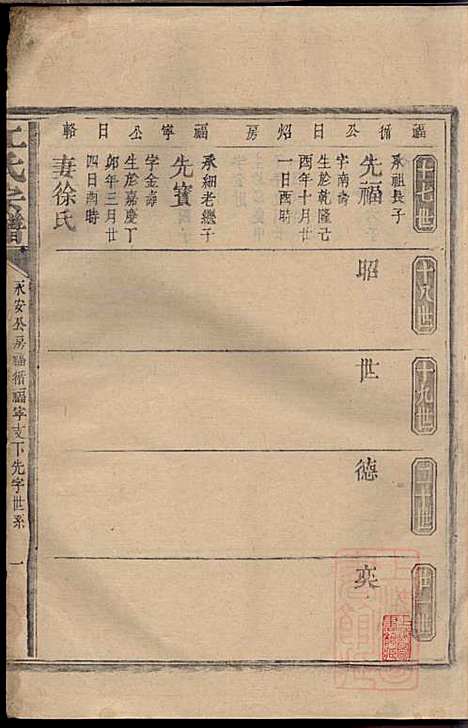 福循公日炤房　福寧公日輅
十七世
先福
承祖長子
字南壽
生於乾隆己
酉年十月廿
一日酉時
先寳
承細老繼子
字金壽
生於嘉慶丁
卯年三月廿
四日酉時
妻徐氏
十八世
昭
十九世
世
二十世
德
廿一世
奕
江氏宗譜
永安公房福循福寧支下先字世系
一